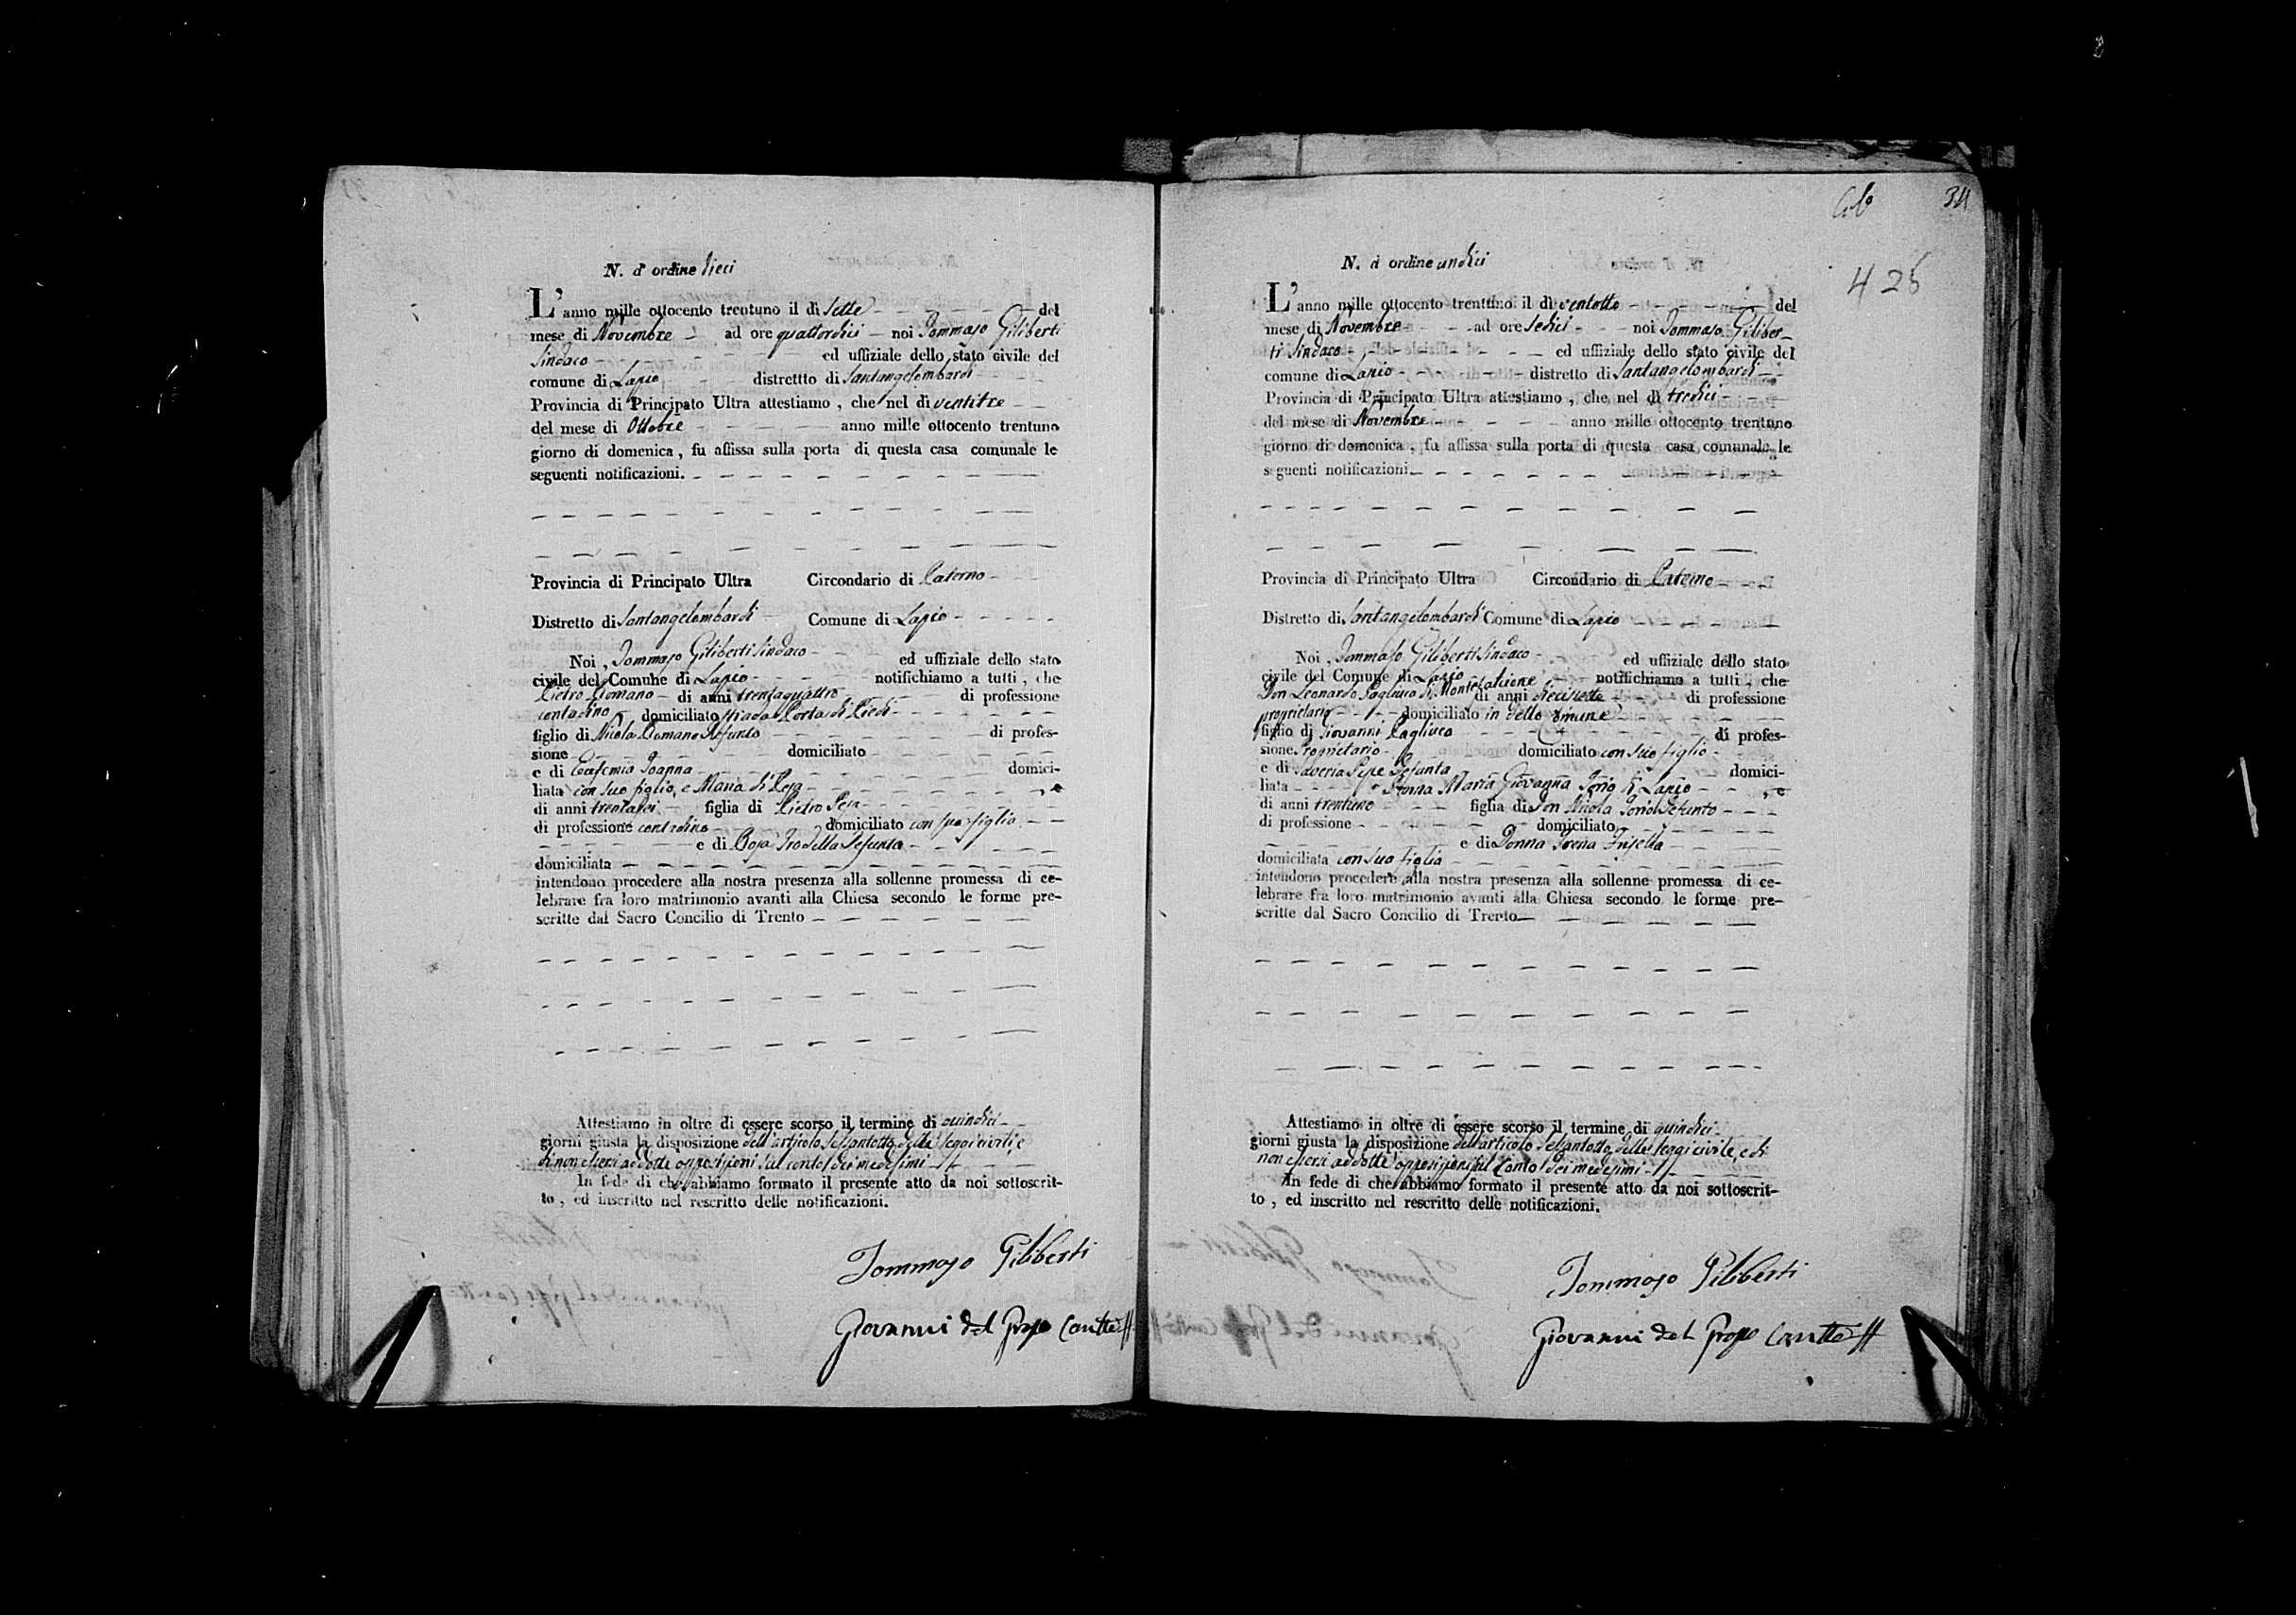 N. d' ordine dieci
L' anno mille ottocento trentuno il dì sette del
mese di Novembre ad ore quattordici noi Tommaso Giliberti
Sindaco ed uffiziale dello stato civile del
comune di Lapio distrettto di Santangelombardi
Provincia di Principato Ultra attestiamo , che nel dì ventitre
del mese di Ottobre anno mille ottocento trentuno
giorno di domenica , fu affissa sulla porta di questa casa comunale le
seguenti notificazioni.
Provincia di Principato Ultra Circondario di Paterno
Distretto di Santangelombardi Comune di Lapio
Noi , Tommaso Giliberti Sindaco ed uffiziale dello stato
civile del Comune di Lapio notifichiamo a tutti , che
Pietro Romano di anni trentaquattro di professione
contadino domiciliato strada Porta di Piedi
figlio di Nicola Romano defunto di profes-
sione domiciliato
e di Eufemia Ioanna domici-
liata con suo figlio, e Maria di Peja , e
di anni trentasei figlia di Pietro Peja
di professione contadino domiciliato con sua figlia
e di Rosa defunta
domiciliata
intendono procedere alla nostra presenza alla sollenne promessa di ce-
lebrare fra loro matrimonio avanti alla Chiesa secondo le forme pre-
scritte dal Sacro Concilio di Trento
Attestiamo in oltre di essere scorso il termine di quindici
giorni giusta la disposizione dell'articolo sessantotto delle leggi civili, e
di non essersi addotte opposizioni sul conto dei medesimi
In fede di che abbiamo formato il presente atto da noi sottoscrit-
to , ed inscritto nel rescritto delle notificazioni.
Tommaso Giliberti
Giovanni del Grosso
34
425
N. d ordine undici
L' anno mille ottocento trentuno il dì ventotto del
mese di Novembre ad ore sedici noi Tommaso Giliber-
ti Sindaco ed uffiziale dello stato civile del
comune di Lapio distretto di Santangelombardi
Provincia di Principato Ultra attestiamo , che nel dì tredici
del mese di Novembre anno mille ottocento trentuno
giorno di domenica , fu affissa sulla porta di questa casa comunale le
seguenti notificazioni
Provincia di Principato Ultra Circondario di Paterno
Distretto di Santangelombardi Comune di Lapio
Noi , Tommaso Giliberti Sindaco ed uffiziale dello stato
civile del Comune di Lapio notifichiamo a tutti , che
Don Leonardo Pagliuca di Montefalcione di anni diecisette di professione
proprietario domiciliato in detto Comune
figlio di Giovanni Pagliuca di profes-
sione Proprietario domiciliato con suo figlio
e di Saveria Pepe defunta domici-
liata e Donna Maria Giovanna Iorio di Lapio , e
di anni trentuno figlia di Don Nicola Iorio defunto
di professione domiciliato
e di Donna
domiciliata con sua figlia
intendono procedere alla nostra presenza alla sollenne promessa di ce-
lebrare fra loro matrimonio avanti alla Chiesa secondo le forme pre-
scritte dal Sacro Concilio di Trento
Attestiamo in oltre di essere scorso il termine di quindici
giorni giusta la disposizione dell'articolo sessantotto delle leggi civile, e di
non essersi addotte opposizioni sul conto dei medesimi
In fede di che abbiamo formato il presente atto da noi sottoscrit-
to , ed inscritto nel rescritto delle notificazioni.
Tommaso Giliberti
Giovanni del Grosso